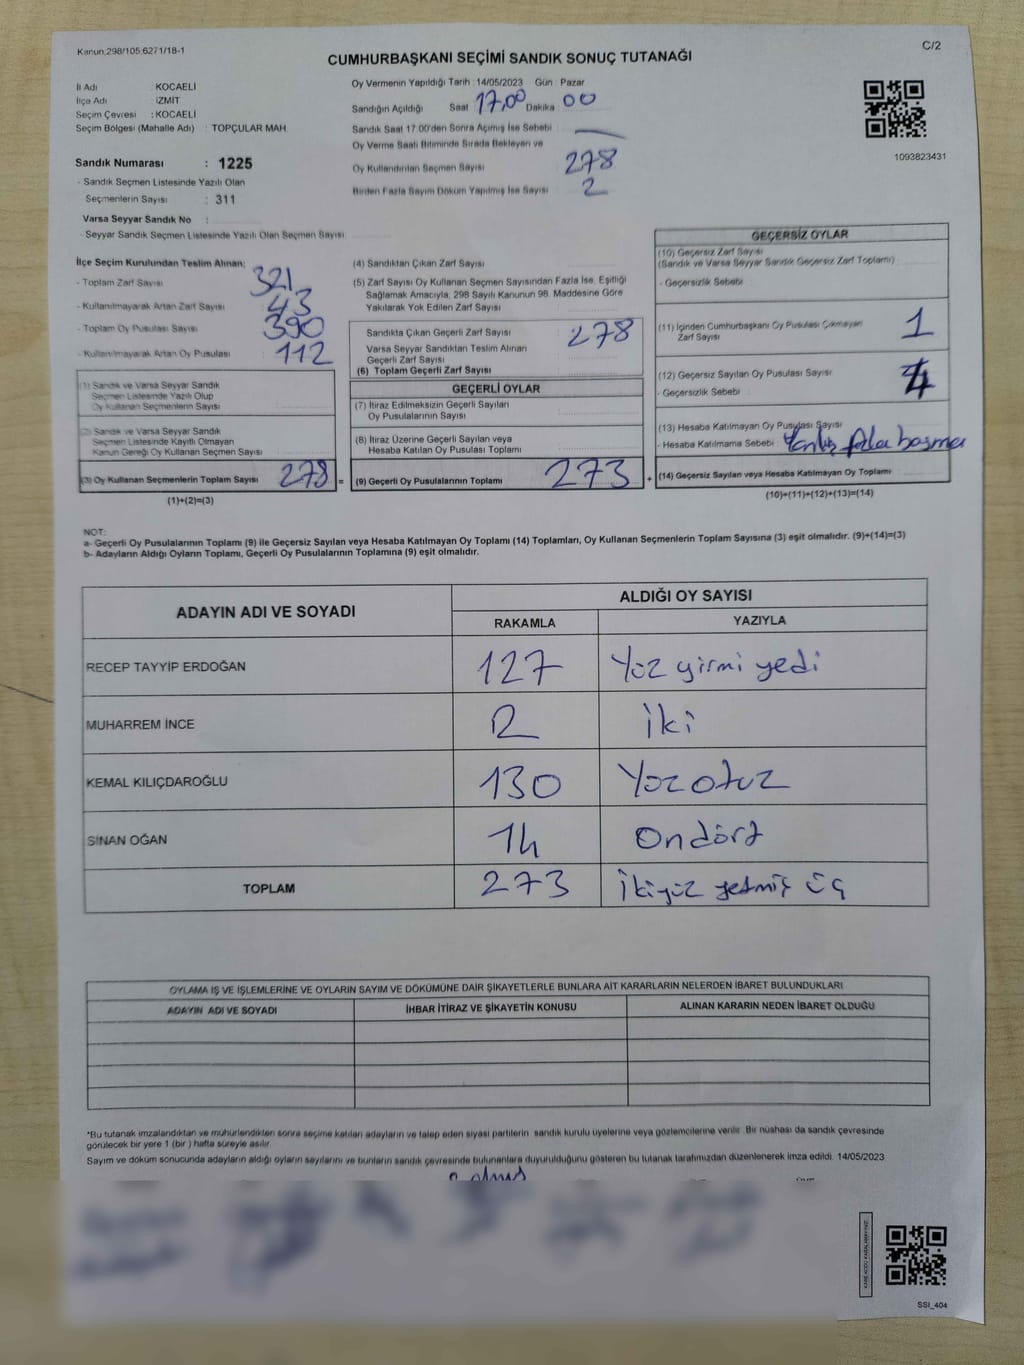 Kanun.298/105,6271/18-1
C/2
CUMHURBAŞKANI SEÇİMİ SANDIK SONUÇ TUTANAĞI
İl Adı KOCAELİ
İlçe Adı İZMİT
Seçim Çevresi : KOCAELİ
Seçim Bölgesi (Mahalle Adı) : TOPÇULAR MAH.
Sandık Numarası : 1225
- Sandık Seçmen Listesinde Yazılı Olan
Seçmenlerin Sayısı : 311
Varsa Seyyar Sandık No :
- Seyyar Sandık Seçmen Listesinde Yazılı Olan Seçmen Sayısı:
Oy Vermenin Yapıldığı Tarih : 14/05/2023 Gün : Pazar
Sandığın Açıldığı Saat 17,00 Dakika 00
Sandık Saat 17:00'den Sonra Açılmış İse Sebebi
Oy Verme Saati Bitiminde Sırada Bekleyen ve
Oy Kullandırılan Seçmen Sayısı 278
Birden Fazla Sayım Döküm Yapılmış İse Sayısı 2
1093823431
İlçe Seçim Kurulundan Teslim Alınan:
- Toplam Zarf Sayısı 321
- Kullanılmayarak Artan Zarf Sayısı 43
- Toplam Oy Pusulası Sayısı 390
- Kullanılmayarak Artan Oy Pusulası 112
(1) Sandık ve Varsa Seyyar Sandık
Seçmen Listesinde Yazılı Olup
Oy Kullanan Seçmenlerin Sayısı
(2) Sandık ve Varsa Seyyar Sandık
Seçmen Listesinde Kayıtlı Olmayan
Kanun Gereği Oy Kullanan Seçmen Sayısı
(3) Oy Kullanan Seçmenlerin Toplam Sayısı 278 =
(1)+(2)=(3)
(4) Sandıktan Çıkan Zarf Sayısı
(5) Zarf Sayısı Oy Kullanan Seçmen Sayısından Fazla İse, Eşitliği
Sağlamak Amacıyla, 298 Sayılı Kanunun 98. Maddesine Göre
Yakılarak Yok Edilen Zarf Sayısı
Sandıkta Çıkan Geçerli Zarf Sayısı 278
Varsa Seyyar Sandıktan Teslim Alınan
Geçerli Zarf Sayısı
(6) Toplam Geçerli Zarf Sayısı
GEÇERLİ OYLAR
(7) İtiraz Edilmeksizin Geçerli Sayılan
Oy Pusulalarının Sayısı
(8) İtiraz Üzerine Geçerli Sayılan veya
Hesaba Katılan Oy Pusulası Toplamı
(9) Geçerli Oy Pusulalarının Toplamı 273 +
GEÇERSİZ OYLAR
(10) Geçersiz Zarf Sayısı
(Sandık ve Varsa Seyyar Sandık Geçersiz Zarf Toplamı)
- Geçersizlik Sebebi
(11) İçinden Cumhurbaşkanı Oy Pusulası Çıkmayan
Zarf Sayısı 1
(12) Geçersiz Sayılan Oy Pusulası Sayısı 4
- Geçersizlik Sebebi
(13) Hesaba Katılmayan Oy Pusulası Sayısı
- Hesaba Katılmama Sebebi : Yanlış fazla basma
(14) Geçersiz Sayılan veya Hesaba Katılmayan Oy Toplamı
(10)+(11)+(12)+(13)=(14)
NOT:
a- Geçerli Oy Pusulalarının Toplamı (9) ile Geçersiz Sayılan veya Hesaba Katılmayan Oy Toplamı (14) Toplamları, Oy Kullanan Seçmenlerin Toplam Sayısına (3) eşit olmalıdır. (9)+(14)=(3)
b- Adayların Aldığı Oyların Toplamı, Geçerli Oy Pusulalarının Toplamına (9) eşit olmalıdır.
ADAYIN ADI VE SOYADI ALDIĞI OY SAYISI
RAKAMLA YAZIYLA
RECEP TAYYİP ERDOĞAN 127 Yüz yirmi yedi
MUHARREM İNCE 2 iki
KEMAL KILIÇDAROĞLU 130 Yüz otuz
SİNAN OĞAN 14 On dört
TOPLAM 273 İkiyüz yetmiş üç
OYLAMA İŞ VE İŞLEMLERİNE VE OYLARIN SAYIM VE DÖKÜMÜNE DAİR ŞİKAYETLERLE BUNLARA AİT KARARLARIN NELERDEN İBARET BULUNDUKLARI
ADAYIN ADI VE SOYADI İHBAR İTİRAZ VE ŞİKAYETİN KONUSU ALINAN KARARIN NEDEN İBARET OLDUĞU
*Bu tutanak imzalandıktan ve mühürlendikten sonra seçime katılan adayların ve talep eden siyasi partilerin sandık kurulu üyelerine veya gözlemcilerine verilir. Bir nüshası da sandık çevresinde
görülecek bir yere 1 (bir) hafta süreyle asılır.
Sayım ve döküm sonucunda adayların aldığı oyların sayılarını ve bunların sandık çevresinde bulunanlara duyurulduğunu gösteren bu tutanak tarafımızdan düzenlenerek imza edildi. 14/05/2023
SSI_404